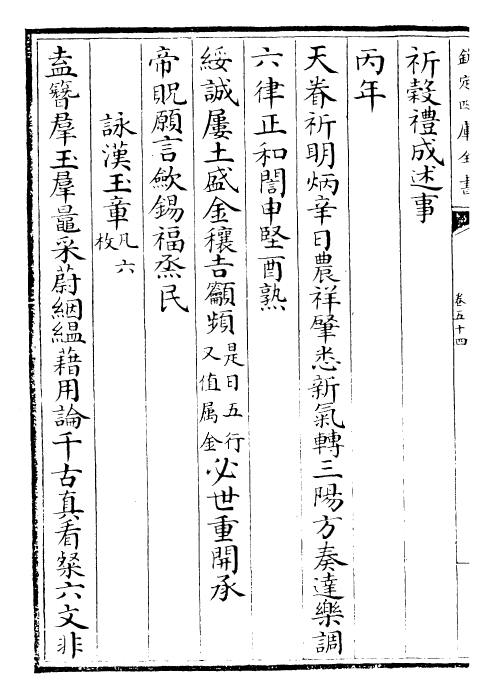 欽定四庫全書
卷五十四
祈穀禮成述事
丙年
天眷祈明炳辛日農祥肇悉新氣轉三陽方奏達樂調
六律正和誾申堅酉熟
綏誠屢土盛金穰吉籲頻是日五行又值属金必世重開承
帝貺願言歛錫福烝民
詠漢玉章凡六枚
盍簪羣玉羣鼂采蔚絪緼藉用論千古真看粲六文非